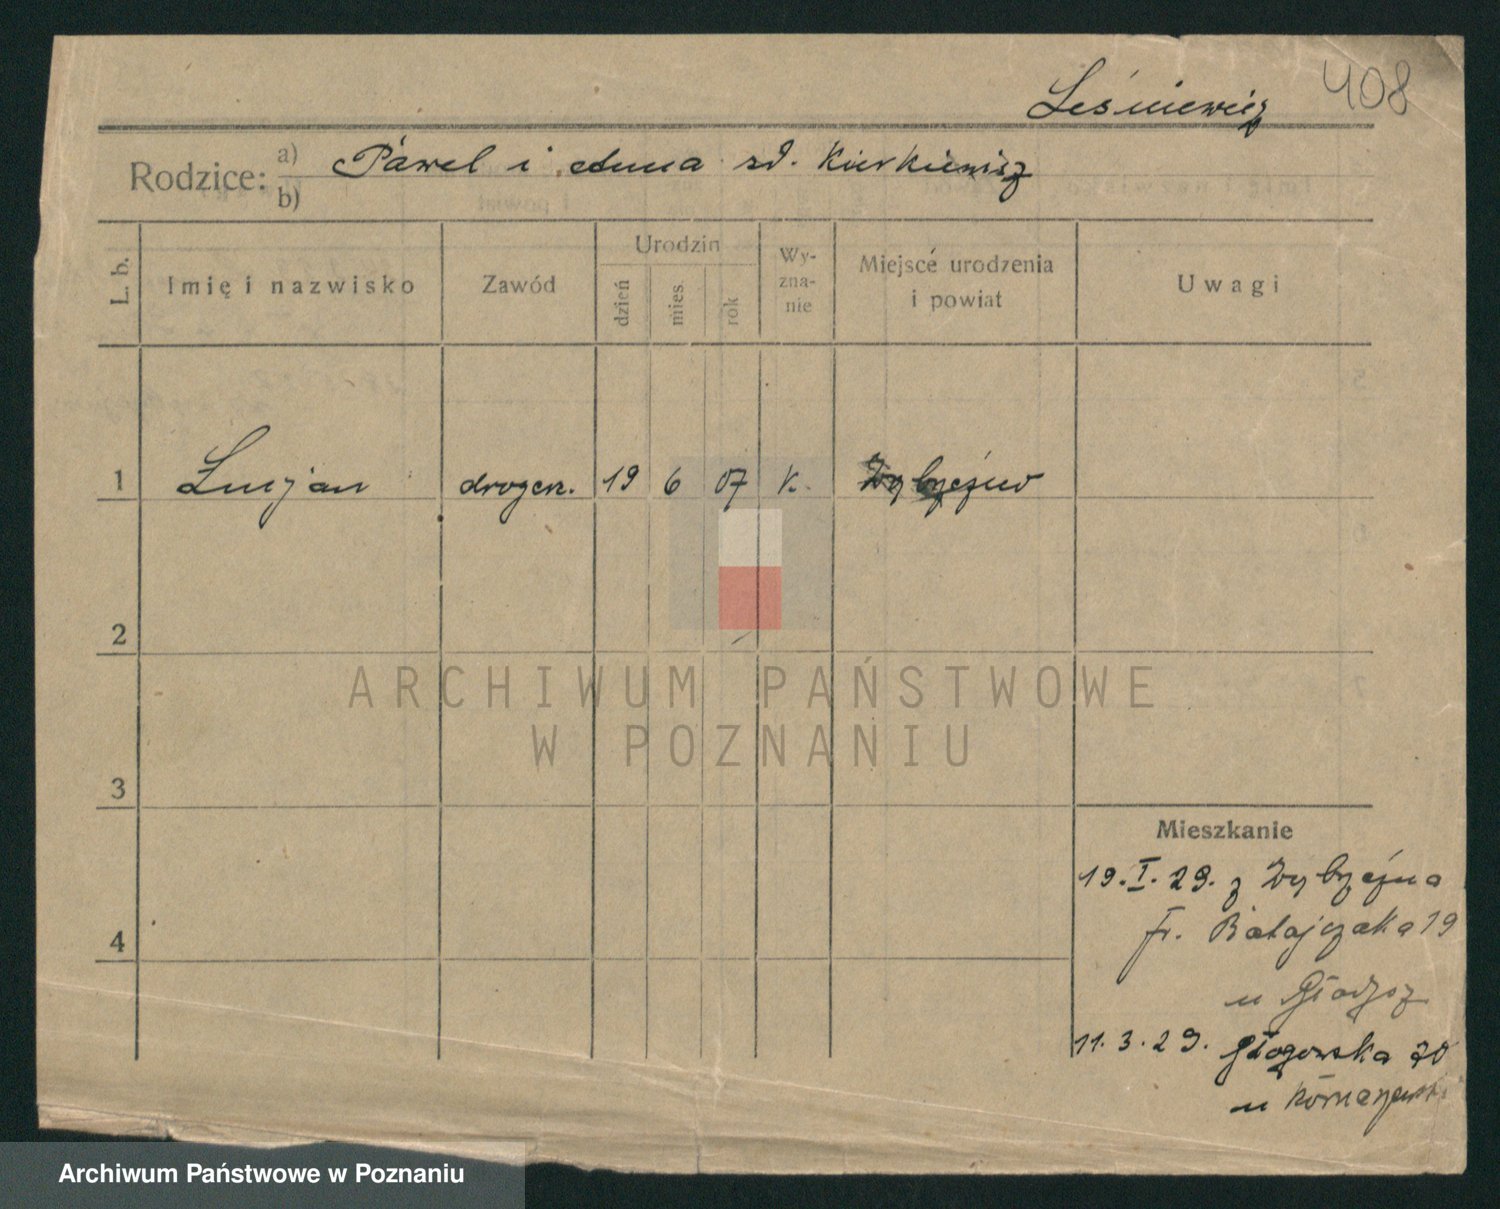 Leśniewicz 408
Rodzice: a) Paweł i Anna zd. Kierkiewicz
b)
L. b. Imię i nazwisko Zawód Urodzin dzień mies. rok Wy-zna-nie Miejsce urodzenia i powiat Uwagi
1 Lucjan drogerz. 19 6 07 k.
2
ARCHIWUM PAŃSTWOWE
W POZNANIU
3
Mieszkanie
19. I. 29. z
4 Fr. Ratajczaka 19
u
11. 3. 29. Głogowska
u
Archiwum Państwowe w Poznaniu